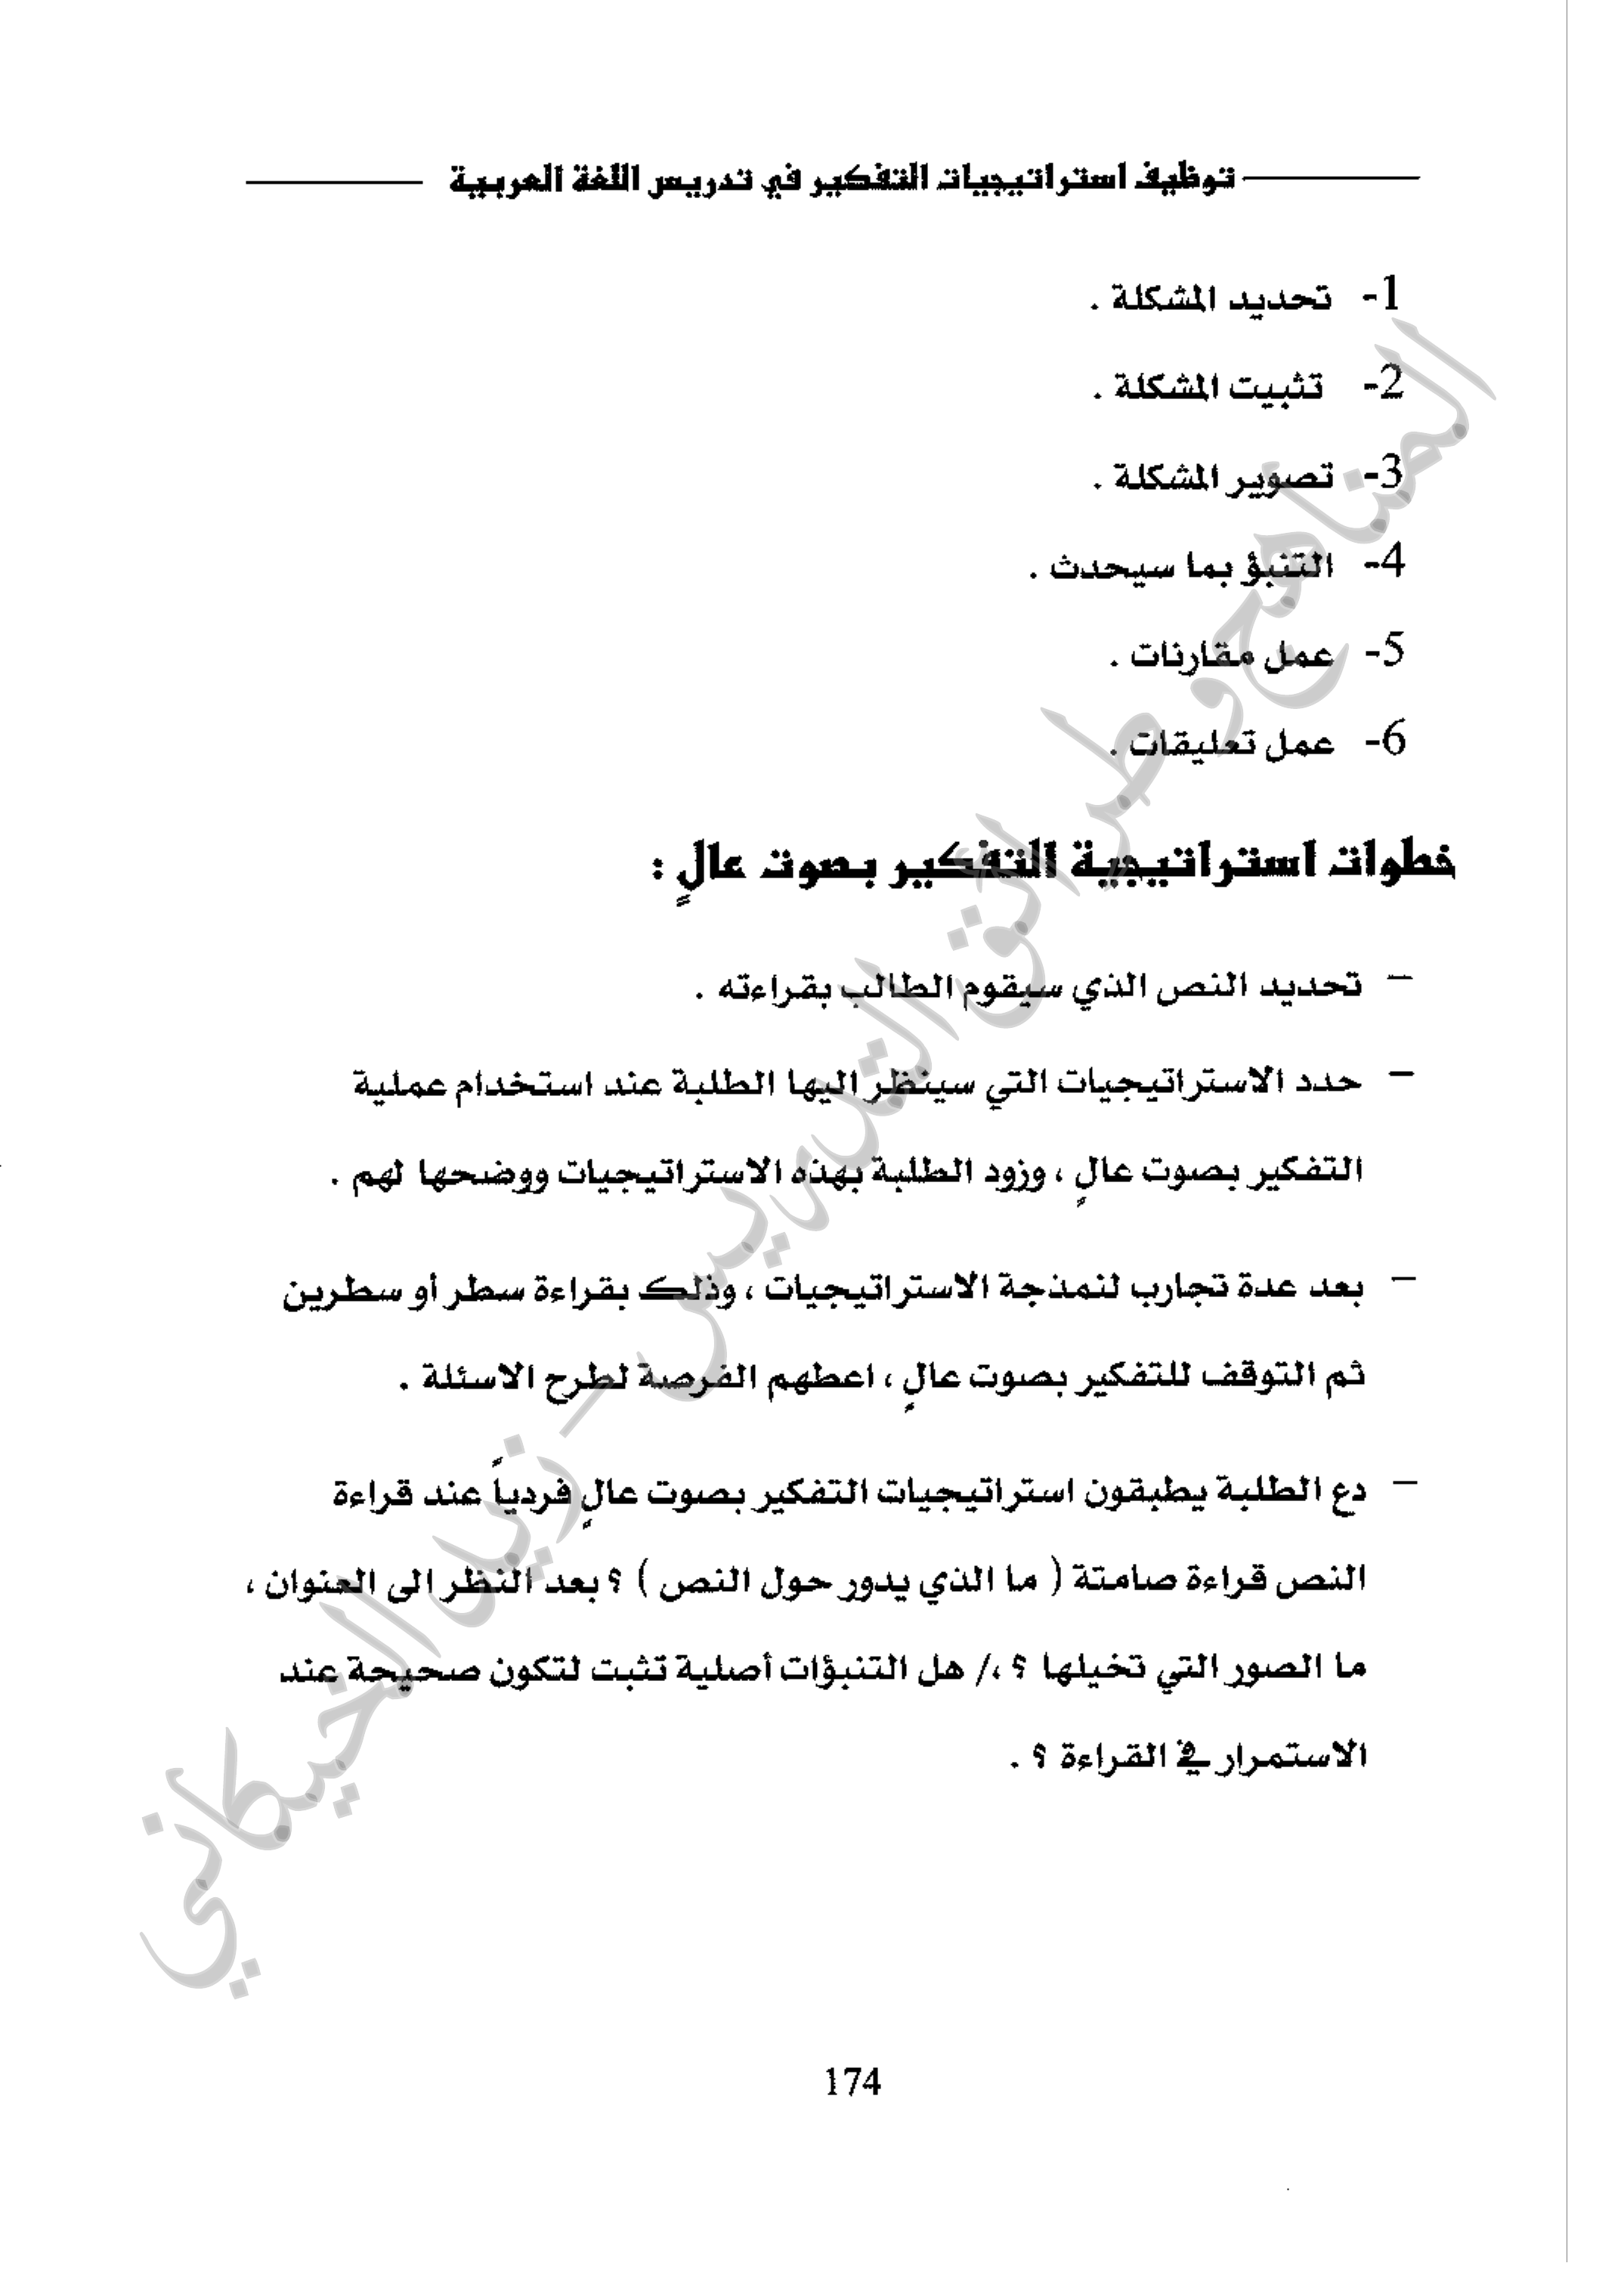 توظيف استراتيجيات التفكير في تدريس اللغة العربية
1- تحديد المشكلة .
2- تثبيت المشكلة .
3- تصوير المشكلة .
4- التنبؤ بما سيحدث .
5- عمل مقارنات .
6- عمل تعليقات .
خطوات استراتيجية التفكير بصوت عالٍ :
– تحديد النص الذي سيقوم الطالب بقراءته .
– حدد الاستراتيجيات التي سينظر اليها الطلبة عند استخدام عملية
التفكير بصوت عالٍ ، وزود الطلبة بهذه الاستراتيجيات ووضحها لهم .
– بعد عدة تجارب لنمذجة الاستراتيجيات ، وذلك بقراءة سطر أو سطرين
ثم التوقف للتفكير بصوت عالٍ ، اعطهم الفرصة لطرح الاسئلة .
– دع الطلبة يطبقون استراتيجيات التفكير بصوت عالٍ فردياً عند قراءة
النص قراءة صامتة ( ما الذي يدور حول النص ) ؟ بعد النظر الى العنوان ،
ما الصور التي تخيلها ؟ ،/ هل التنبؤات أصلية تثبت لتكون صحيحة عند
الاستمرار في القراءة ؟ .
174
المناهج وطرائق التدريس - زيد الخيكاني